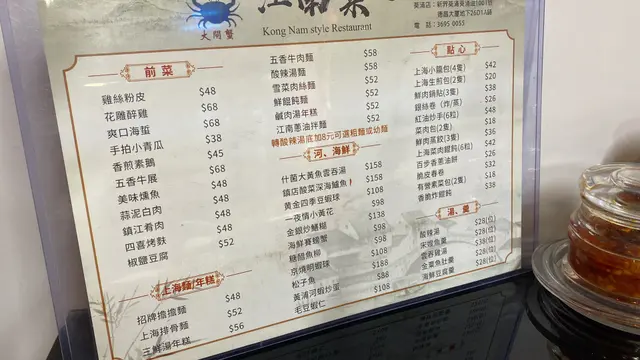 江南菜
大閘蟹
Kong Nam style Restaurant
電 話：3695 0055
前菜
雞絲粉皮 $48
花雕醉雞 $68
爽口海蜇 $68
手拍小青瓜 $38
香煎素鵝 $45
五香牛展 $68
美味燻魚 $48
蒜泥白肉 $48
鎮江肴肉 $48
四喜烤麩 $48
椒鹽豆腐 $52
上海麵/年糕
招牌擔擔麵 $48
上海排骨麵 $52
三鮮湯年糕 $56
五香牛肉麵 $58
酸辣湯麵 $58
雪菜肉絲麵 $52
鮮餛飩麵 $52
鹹肉湯年糕 $52
江南蔥油拌麵 $52
轉酸辣湯底加8元可選粗麵或幼麵
河、海鮮
什菌大黃魚雲吞湯 $158
鎮店酸菜深海鱸魚 $158
黃金四季豆蝦球 $108
一夜情小黃花 $138
金銀炒鱔糊 $98
海鮮賽螃蟹 $98
糖醋魚柳 $108
京燒明蝦球 $188
松子魚 $88
黃清河蝦炒蛋 $108
毛豆蝦仁
點心
上海小籠包(4隻) $42
上海生煎包(2隻) $20
鮮肉鍋貼(3隻) $38
銀絲卷（炸/蒸） $26
紅油炒手(6粒) $48
菜肉包(2隻) $18
鮮肉蒸餃(3隻) $36
上海菜肉餛飩(6粒) $42
百步香蔥油餅 $26
脆皮春卷 $32
有營素菜包(2隻) $18
香脆炸餛飩 $38
湯、羹
酸辣湯 $28(位)
宋嫂魚羹 $28(位)
雲吞雞湯 $38(位)
金菜魚肚羹 $28(位)
海鮮豆腐羹 $28(位)